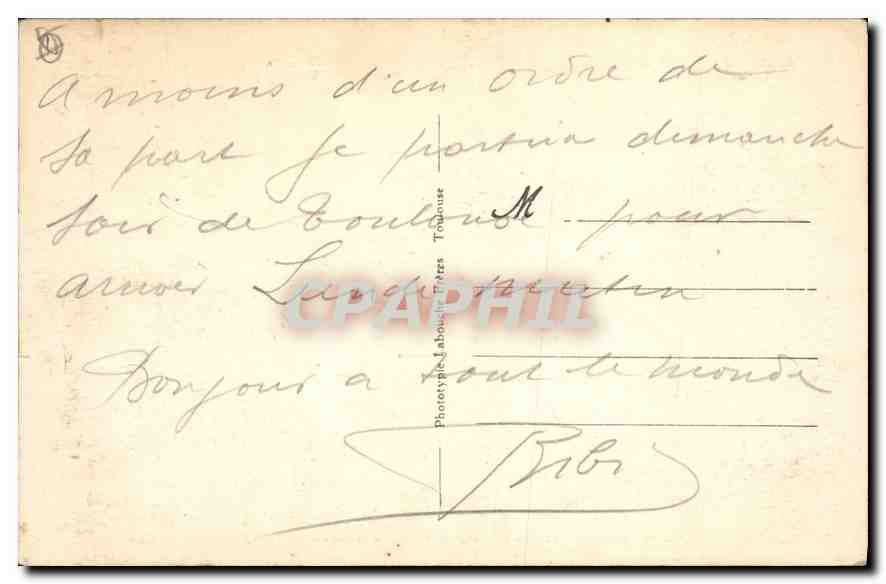 A moins d'un ordre de
sa part Je partirai dimanche
soir de Toulouse pour
arriver Lundi matin
Bonjour a tout le monde
Bibi
M
Phototypie Labouche Frères Toulouse
CPAPHIL